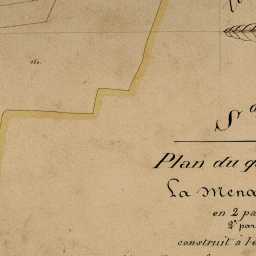 S
Plan du q
La Mena
en 2 pa
2e par
construit à l'é